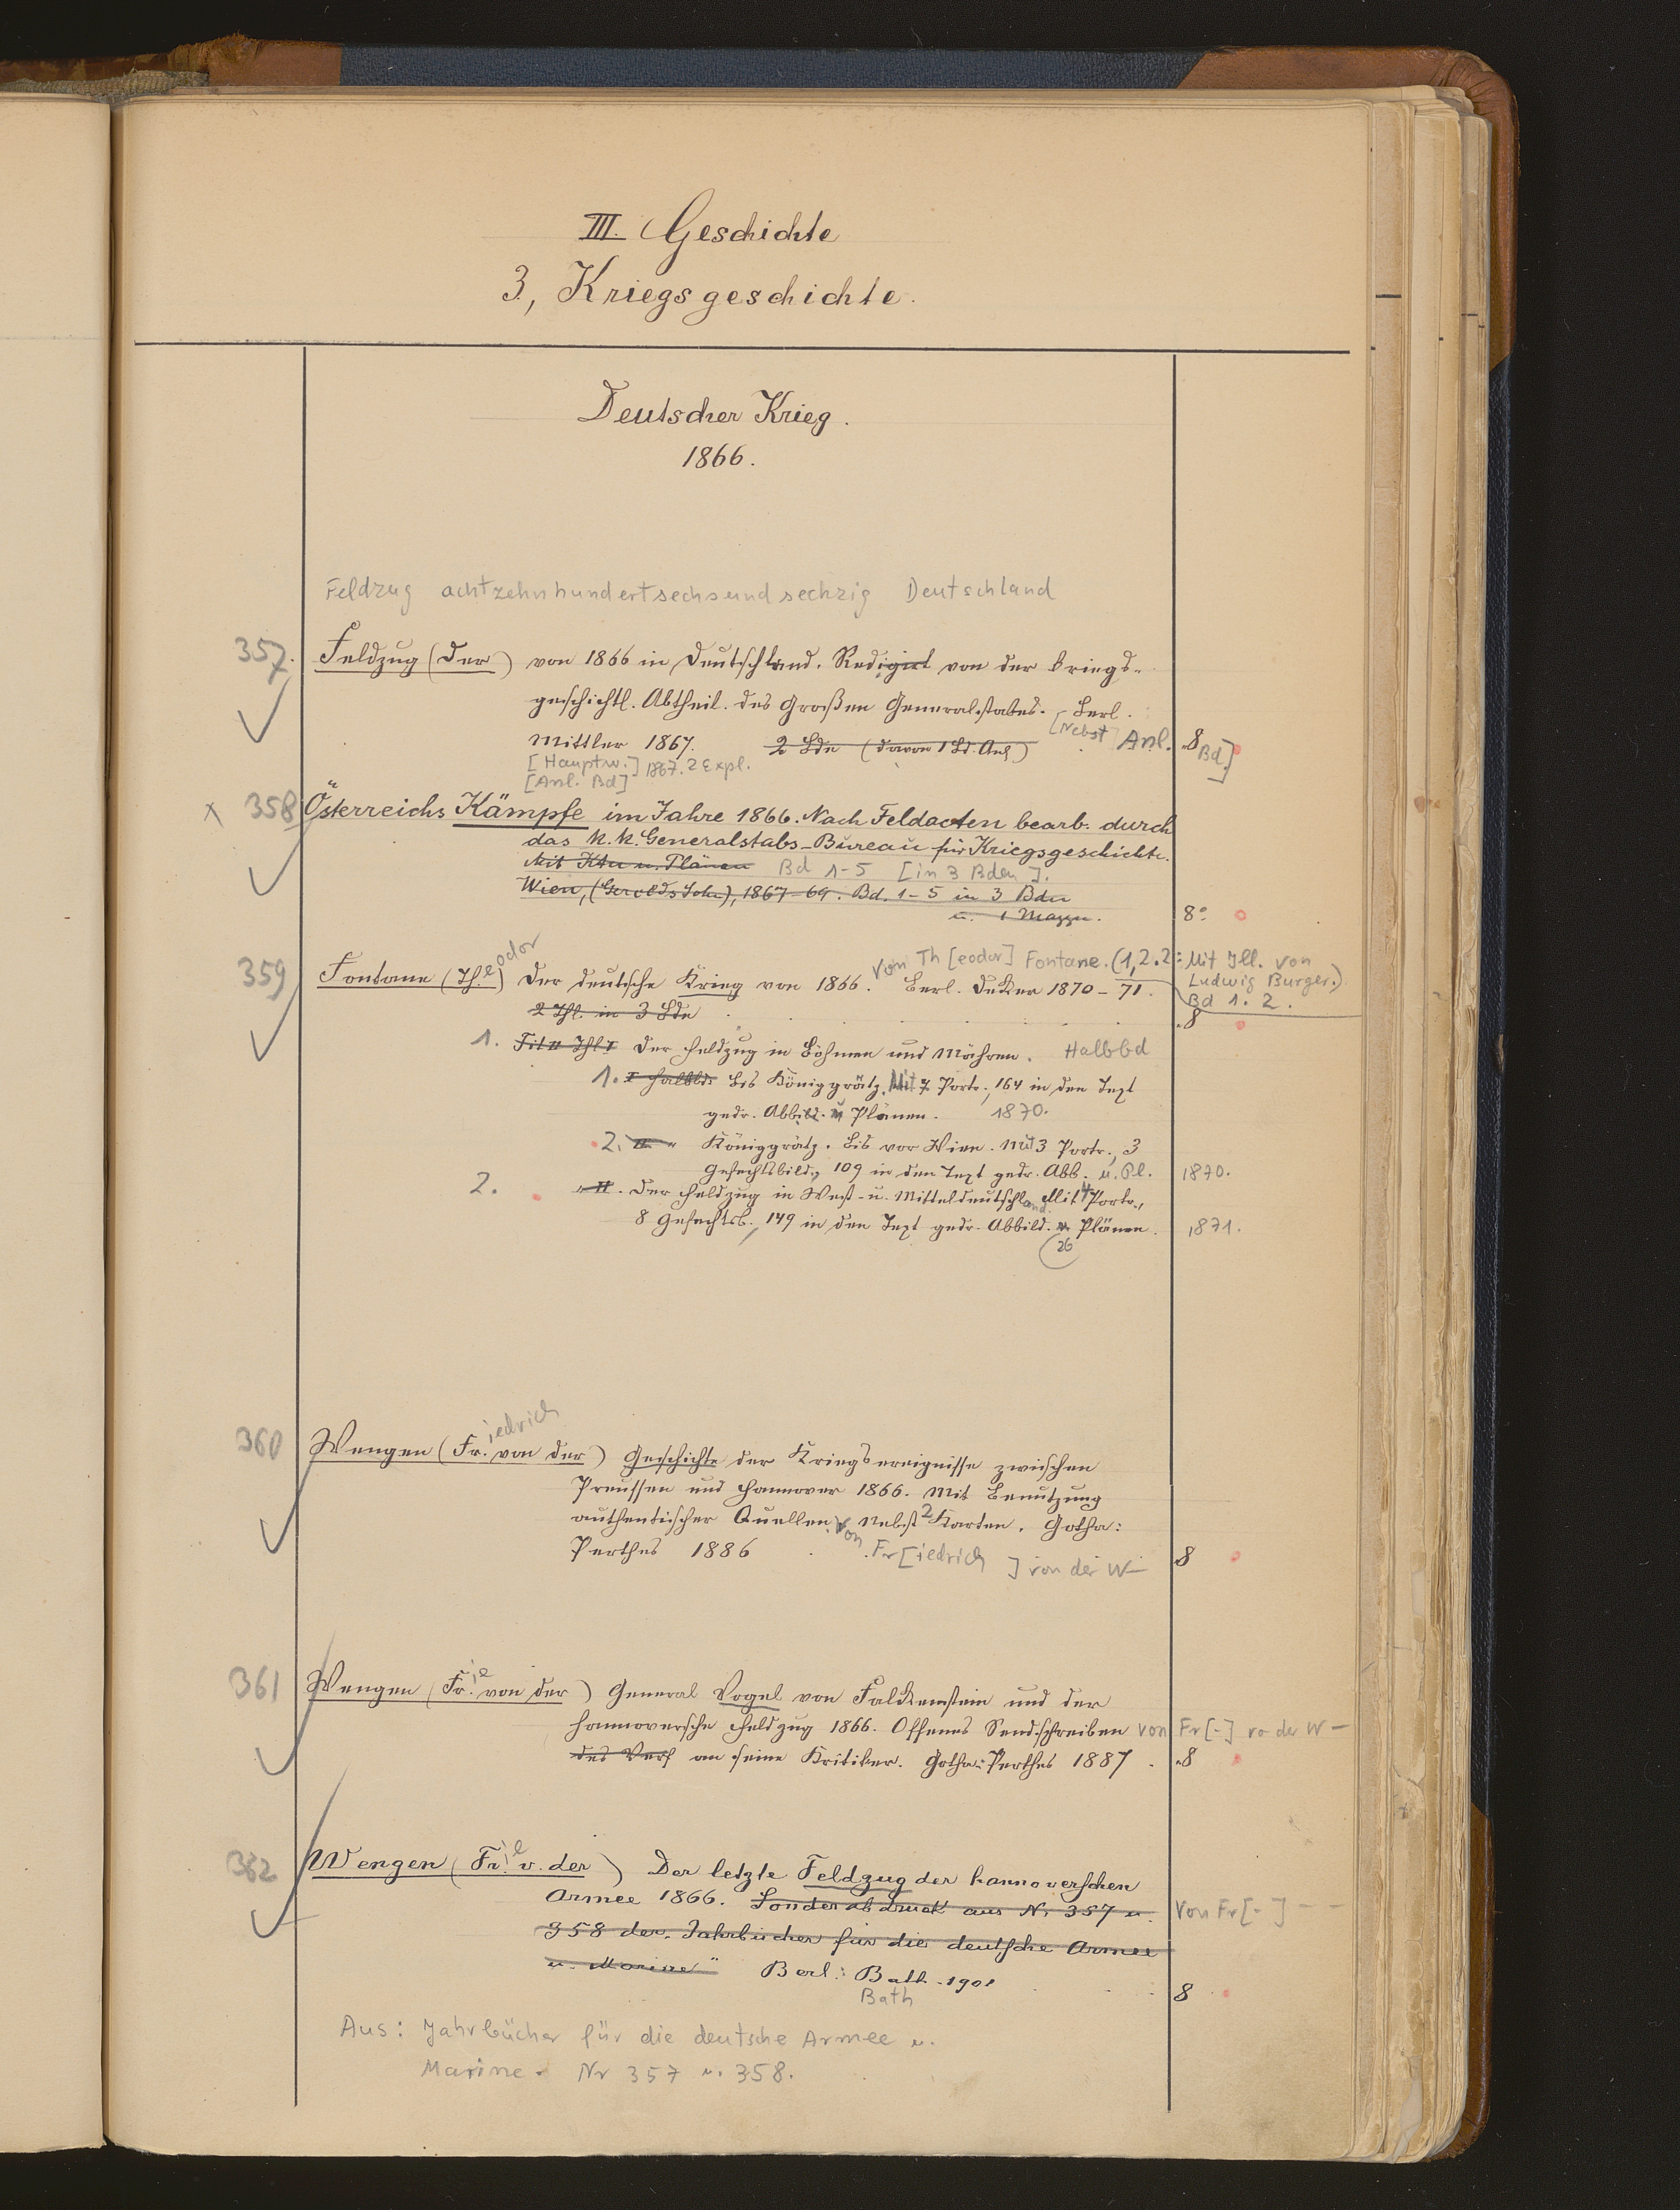 III. Geschichte
3, Kriegsgeschichte.
Deutscher Krieg.
1866.
Feldzug achtzehnhundertsechsundsechzig Deutschland
357. Feldzug (Der) von 1866 in Deutschland. Redigirt von der kriegs-
geschichtl. Abtheil. des Großen Generalstabes. Berl.
[Nebst] Anl. Bd]
Mittler 1867. 2 Bde (davon 1 Bd. Anl) 8
[Hauptw.] 1867. 2 Expl.
[Anl. Bd]
x 358 Österreichs Kämpfe im Jahre 1866. Nach Feldacten bearb. durch
das k. k. Generalstabs-Bureau für Kriegsgeschichte.
Mit Ktn u. Plänen Bd 1-5 [in 3 Bden].
Wien, (Gerolds Sohn), 1867-69. Bd. 1-5 in 3 Bdn
u. 1 Mappe. 8°
359 Fontane (Th.eodor) Der deutsche Krieg von 1866. Von Th[eodor] Fontane. (1,2.2: Mit Ill. von
Ludwig Burger.)
Berl. Decker 1870-71. Bd 1. 2.
2 Thl. in 3 Bde 8
1. Der Feldzug in Böhmen und Mähren. Halbbd
1. I Halbbd. Bis Königgrätz. Mit 7 Portr., 164 in den Text
gedr. Abbild. u Plänen. 1870.
2. II " Königgrätz. Bis vor Wien. Mit 3 Portr., 3
Gefechtsbild., 109 in den Text gedr. Abb. u. Pl. 1870.
2. II. Der Feldzug in West- u. Mitteldeutschland. Mit 4 Portr.,
8 Gefechtsb., 149 in den Text gedr. Abbild. u. Plänen. 1871.
26
360 Wengen (Fr.iedrich von der) Geschichte der Kriegsereignisse zwischen
Preussen und Hannover 1866. Mit Benutzung
authentischer Quellen. Nebst 2 Karten. Gotha:
Perthes 1886 Von Fr[iedrich] von der W- 8
361 Wengen (Fr.ie von der) General Vogel von Falckenstein und der
hannoversche Feldzug 1866. Offenes Sendschreiben von Fr[-] vo der W-
des Verf an seine Kritiker. Gotha: Perthes 1887. 8
362 Wengen (Fr.ie v. der) Der letzte Feldzug der hannoverschen
Armee 1866. Sonderabdruck aus Nr 357 u. Von Fr[-] - -
358 der "Jahrbücher für die deutsche Armee
u. Marine" Berl.: Bath. 1901
Bath 8
Aus: Jahrbücher für die deutsche Armee u.
Marine. Nr 357 u. 358.